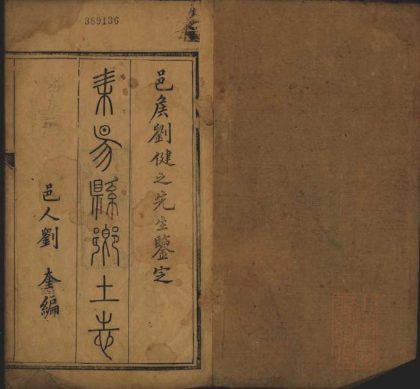 389136
邑矦劉健之先生鑒定
耒昜縣鄉土志
邑人劉奎編